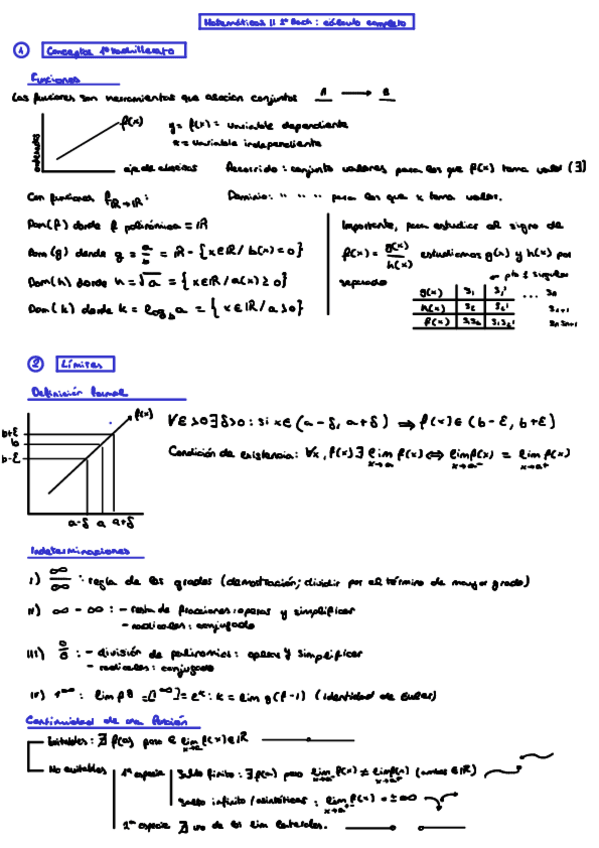 Matemáticas II 2º Bach: cálculo completo
1 Conceptos 1º bachillerato
Funciones
Las funciones son herramientas que asocian conjuntos A → B
f(x)
ordenadas
eje de abscisas
y = f(x) = variable dependiente
x = variable independiente
Recorrido: conjunto valores para los que f(x) toma valor (∃)
Dominio: " " " para los que x toma valor.
Con funciones f ℝ→ℝ:
Dom(f) donde f polinómica = ℝ
Dom(g) donde g = a/b = ℝ - {x∈ℝ / b(x) = 0}
Dom(h) donde h = √a = {x∈ℝ / a(x) ≥ 0}
Dom(k) donde k = log_b a = {x∈ℝ / a > 0}
Importante, para estudiar el signo de
f(x) = g(x)/h(x) estudiamos g(x) y h(x) por
separado
g(x) S₁ S₁' ...
h(x) S₂ S₂'
f(x) S₁S₂ S₁'S₂'
2 Límites
Definición formal
f(x)
b+ε
b
b-ε
a-δ a a+δ
∀ε>0 ∃δ>0 : si x∈(a-δ, a+δ) ⇒ f(x)∈(b-ε, b+ε)
Condición de existencia: ∀x, f(x) ∃ lim x→a f(x) ⇔ lim x→a⁻ f(x) = lim x→a⁺ f(x)
Indeterminaciones
I) ∞/∞ : regla de los grados (demostración; dividir por el término de mayor grado)
II) ∞ - ∞ : - resta de fracciones: operas y simplificar
- radicales: conjugado
III) 0/0 : - división de polinomios: operas y simplificar
- radicales: conjugado
IV) 1^∞ : lim f^g = [1^∞] = e^k : k = lim g(f-1) (identidad de Euler)
Continuidad de una función
Evitables: ∄ f(a) pero ∃ lim x→a f(x)∈ℝ
No evitables
1ª especie
Salto finito: ∃ f(a) pero lim x→a⁻ f(x) ≠ lim x→a⁺ f(x) (ambos ∈ℝ)
Salto infinito / asintóticas: lim f(x) = ±∞
2ª especie ∄ uno de los lim laterales.